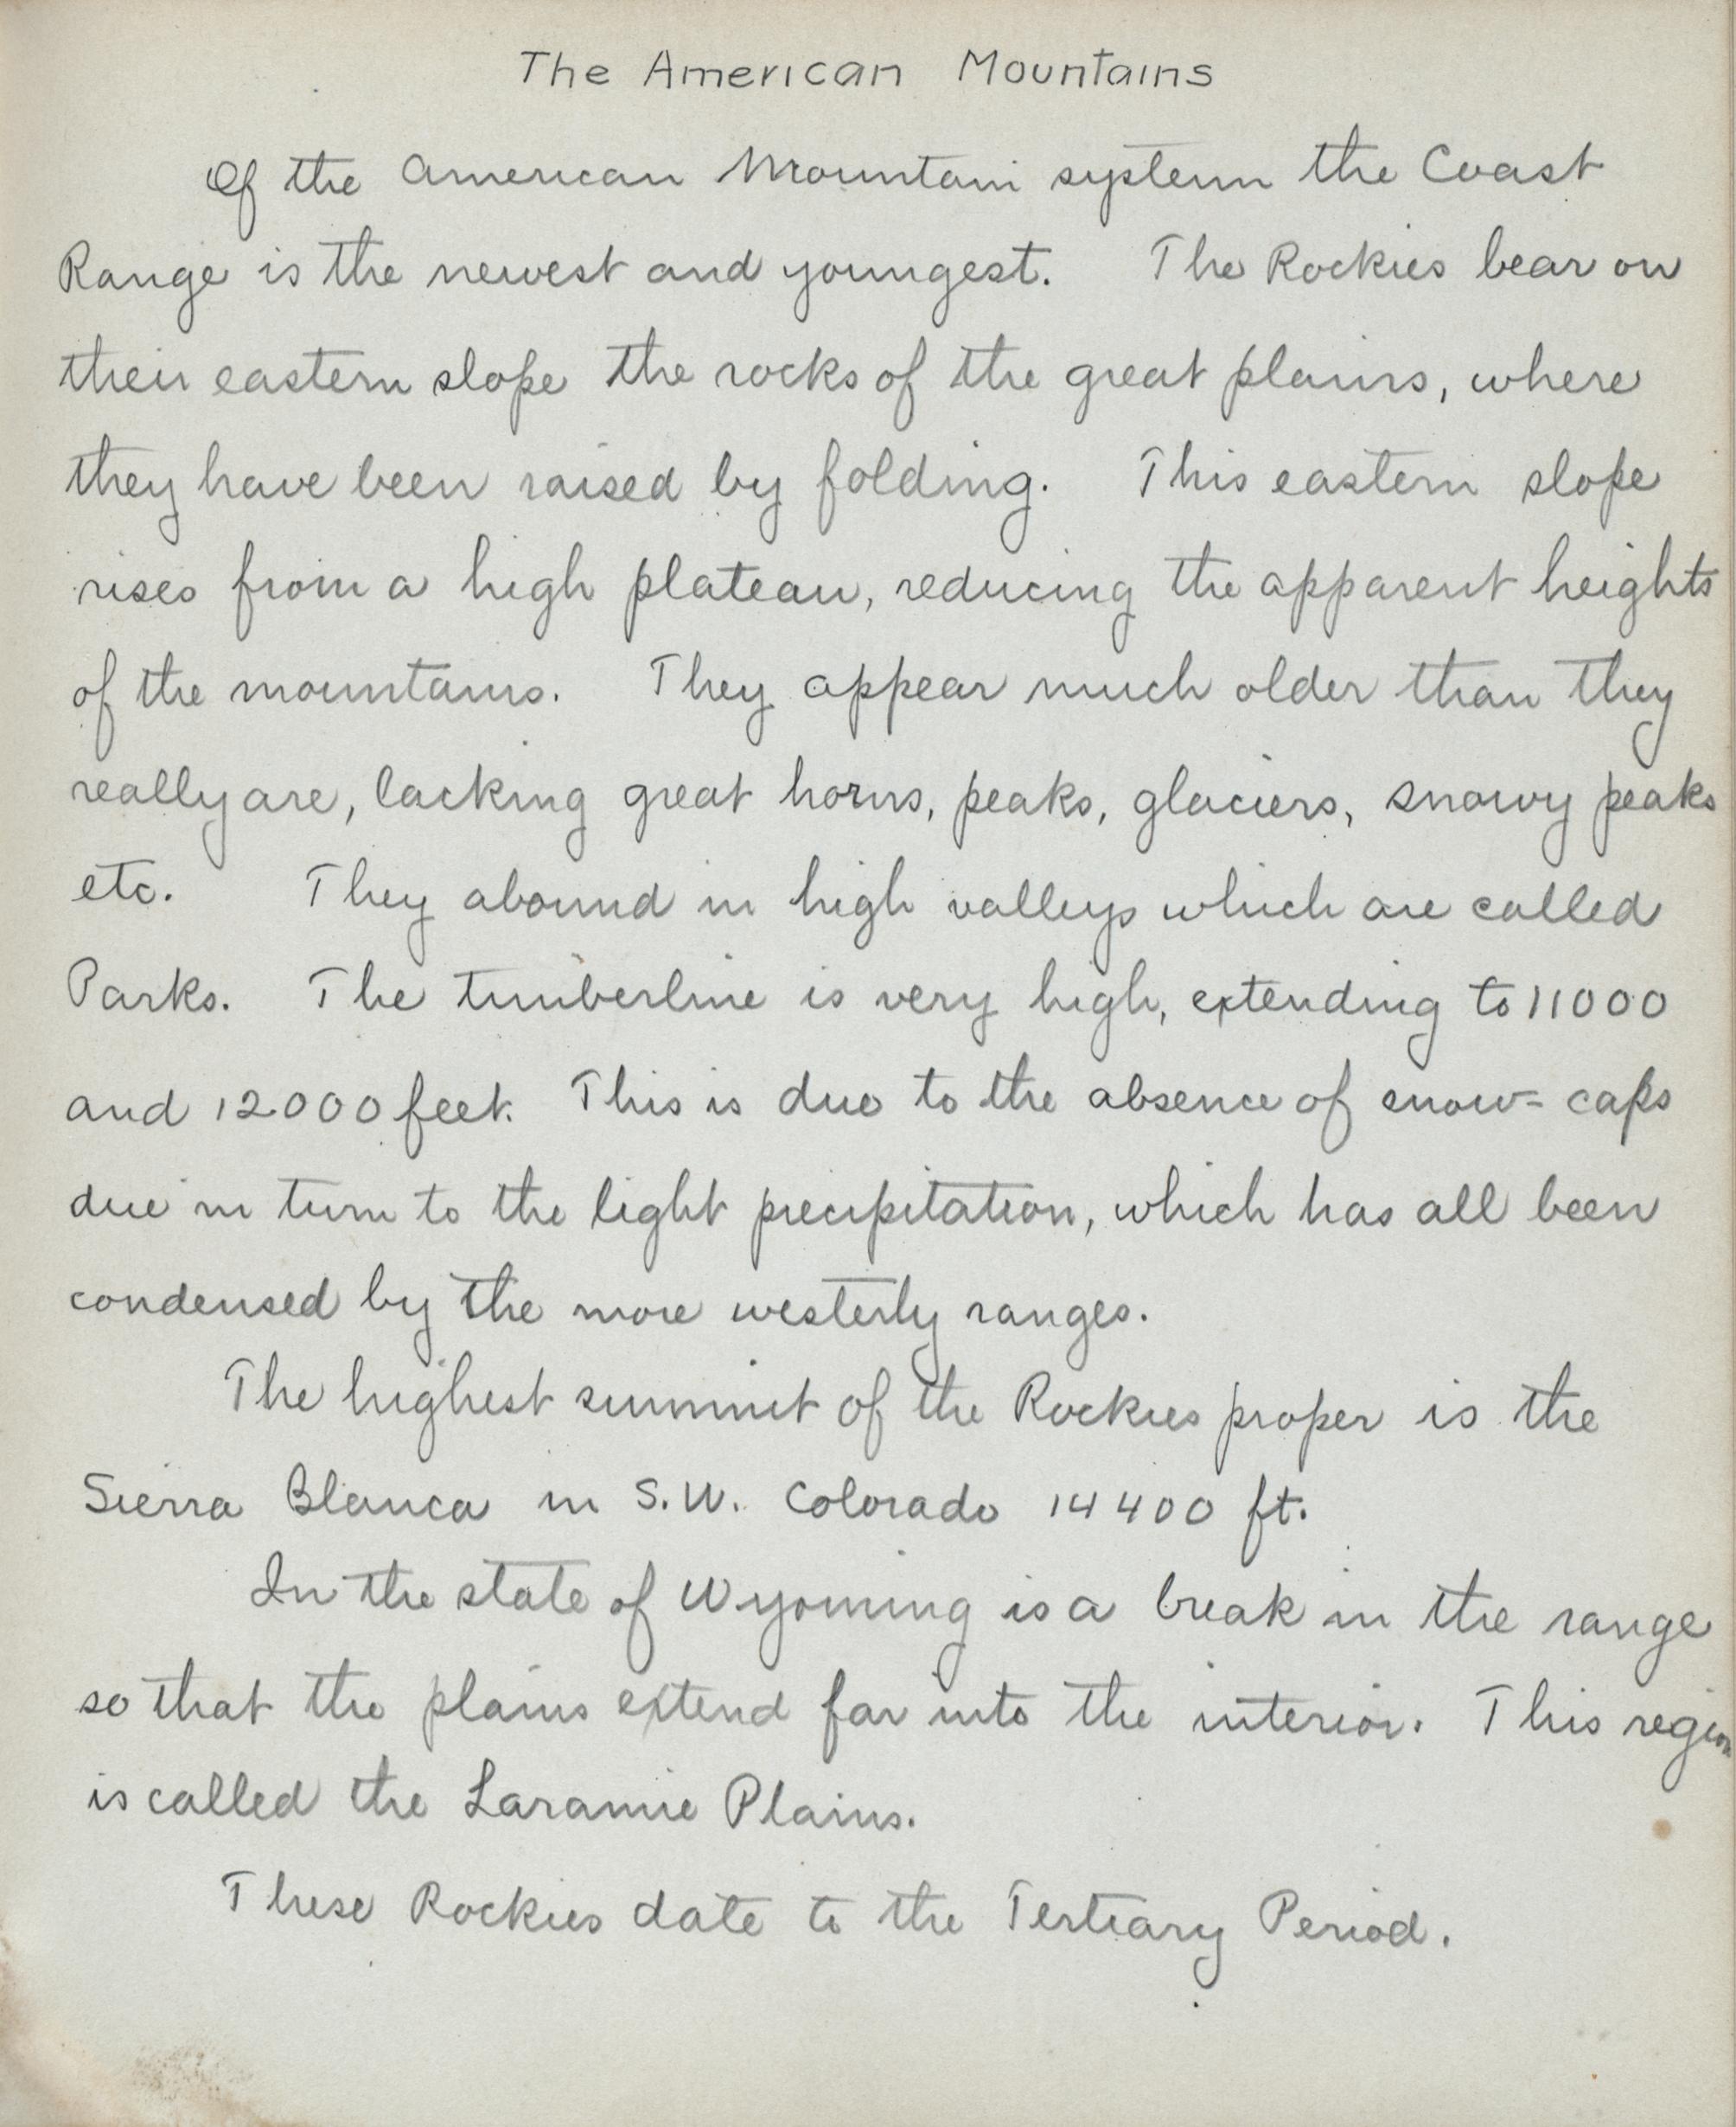 The American Mountains
Of the American Mountain system the Coast
Range is the newest and youngest. The Rockies bear on
their eastern slope the rocks of the great plains, where
they have been raised by folding. This eastern slope
rises from a high plateau, reducing the apparent heights
of the mountains. They appear much older than they
really are, lacking great horns, peaks, glaciers, snowy peaks
etc. They abound in high valleys which are called
Parks. The timberline is very high, extending to 11000
and 12000 feet. This is due to the absence of snow= caps
due in turn to the light precipitation, which has all been
condensed by the more westerly ranges.
The highest summit of the Rockies proper is the
Sierra Blanca in S.W. Colorado 14400 ft.
In the state of Wyoming is a break in the range
so that the plains extend far into the interior. This region
is called the Laramie Plains.
These Rockies date to the Tertiary Period.